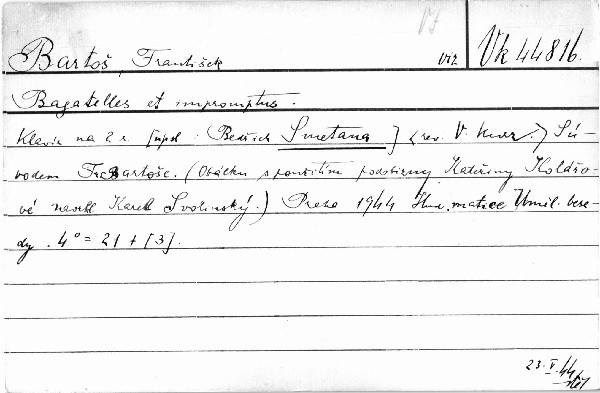 Bartoš, František viz Vk 44816.
Bagatelles et impromptus.
Klavír na 2 r. [upl: Bedřich Smetana] <rev. V. Kurz.> S ú-
vodem Fr. Bartoše. (Obálku s použitím podobizny Kateřiny Kolářo-
vé navrhl Karel Svolinský.) Praha 1944 Hud. matice Uměl. bese-
dy. 4° = 21 + [3].
23. V. 44